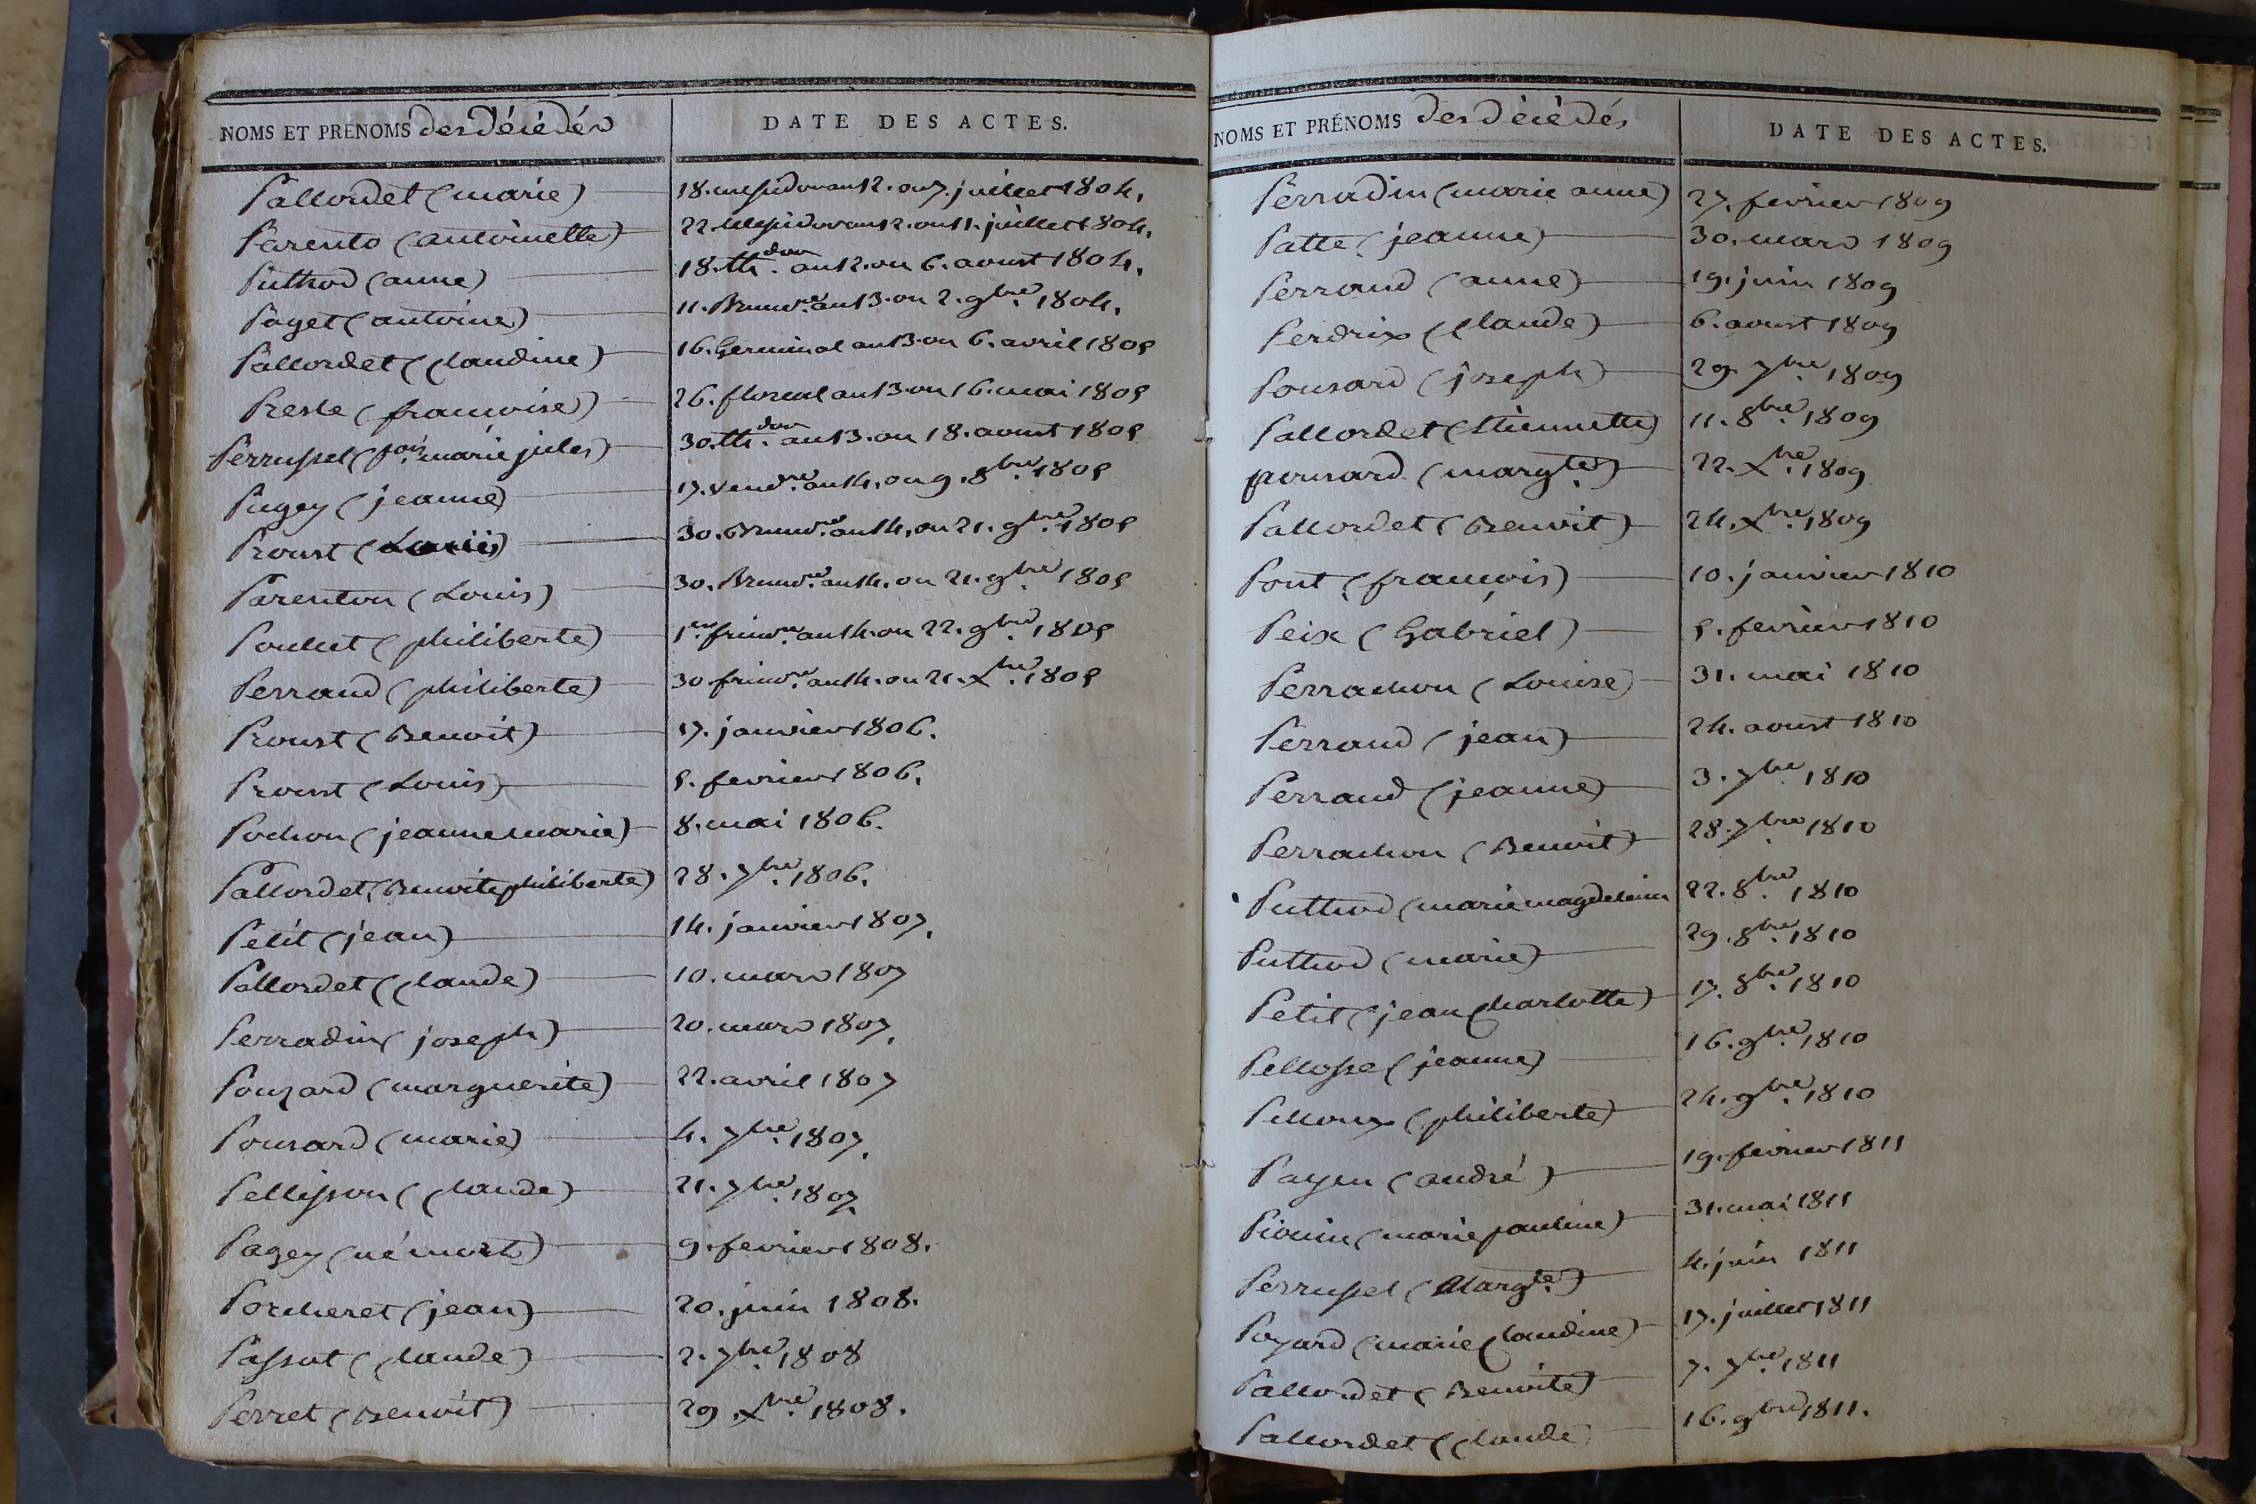 NOMS ET PRÉNOMS des décédés DATE DES ACTES.
Pallordet (marie) 18. messidor an 12. ou 7. juillet 1804.
Parento (antoinette) 22. Messidor an 12. ou 11. juillet 1804.
Puthod (anne) 18. th.dor an 12. ou 6. aoust 1804.
Paget (antoine) 11. Brum.re an 13. ou 2. 9bre. 1804.
Pallordet (Claudine) 16. Germinal an 13. ou 6. avril 1805
Presle (françoise) 26. floreal an 13. ou 16. mai 1805
Perrussel (fois. marie jules) 30. th.dor an 13. ou 18. aoust 1805
Pugey (jeanne) 17. vend.re an 14. ou 9. 8bre. 1805
Proust (Louis) 30. Brum.re an 14. ou 21. 9bre. 1805
Parenton (Louis) 30. Brum.re an 14. ou 21. 9bre. 1805
Pouchut (philiberte) 1er. frim.re an 14. ou 22. 9bre. 1805
Perraud (philiberte) 30. frim.re an 14. ou 21. Xbre. 1805
Proust (Benoit) 17. janvier 1806.
Proust (Louis) 5. fevrier 1806.
Pochon (jeanne marie) 8. mai 1806.
Pallordet (Benoite philiberte) 28. 7bre. 1806.
Petit (jean) 14. janvier 1807.
Pallordet (Claude) 10. mars 1807
Perradin (joseph) 20. mars 1807.
Pouzard (marguerite) 22. avril 1807
Pousard (marie) 4. 7bre. 1807.
Pellisson (Claude) 21. 7bre. 1807.
Pagey (né mort) 9. fevrier 1808.
Porcheret (jean) 20. juin 1808.
Passot (Claude) 2. 7bre. 1808
Perret (Benoit) 29. Xbre. 1808.
NOMS ET PRÉNOMS des décédés DATE DES ACTES.
Perradin (marie anne) 27. fevrier 1809
Patte (jeanne) 30. mars 1809
Perraud (anne) 19. juin 1809
Perdrix (Claude) 6. aoust 1809
Pousard (joseph) 29. 7bre. 1809
Pallordet (Etiennette) 11. 8bre. 1809
pousard (margte.) 22. Xbre. 1809
Pallordet (Benoit) 24. Xbre. 1809
Pont (françois) 10. janvier 1810
Peix (Gabriel) 5. fevrier 1810
Perrachon (Louise) 31. mai 1810
Perraud (jean) 24. aoust 1810
Perraud (jeanne) 3. 7bre 1810
Perrachon (Benoit) 28. 7bre. 1810
Puthod (marie magdeleine 22. 8bre. 1810
Puthod (marie) 29. 8bre. 1810
Petit (jean Charlotte) 17. 8bre. 1810
Pellosse (jeanne) 16. 9bre. 1810
Pelloux (philiberte) 24. 9bre. 1810
Payen (andré) 19. fevrier 1811
(marie pauline) 31. mai 1811
Perrussel (Margte.) 4. juin 1811
Poyard (marie Claudine) 17. juillet 1811
Pallordet (Benoite) 7. 7bre. 1811
Pallordet (Claude 16. 9bre 1811.